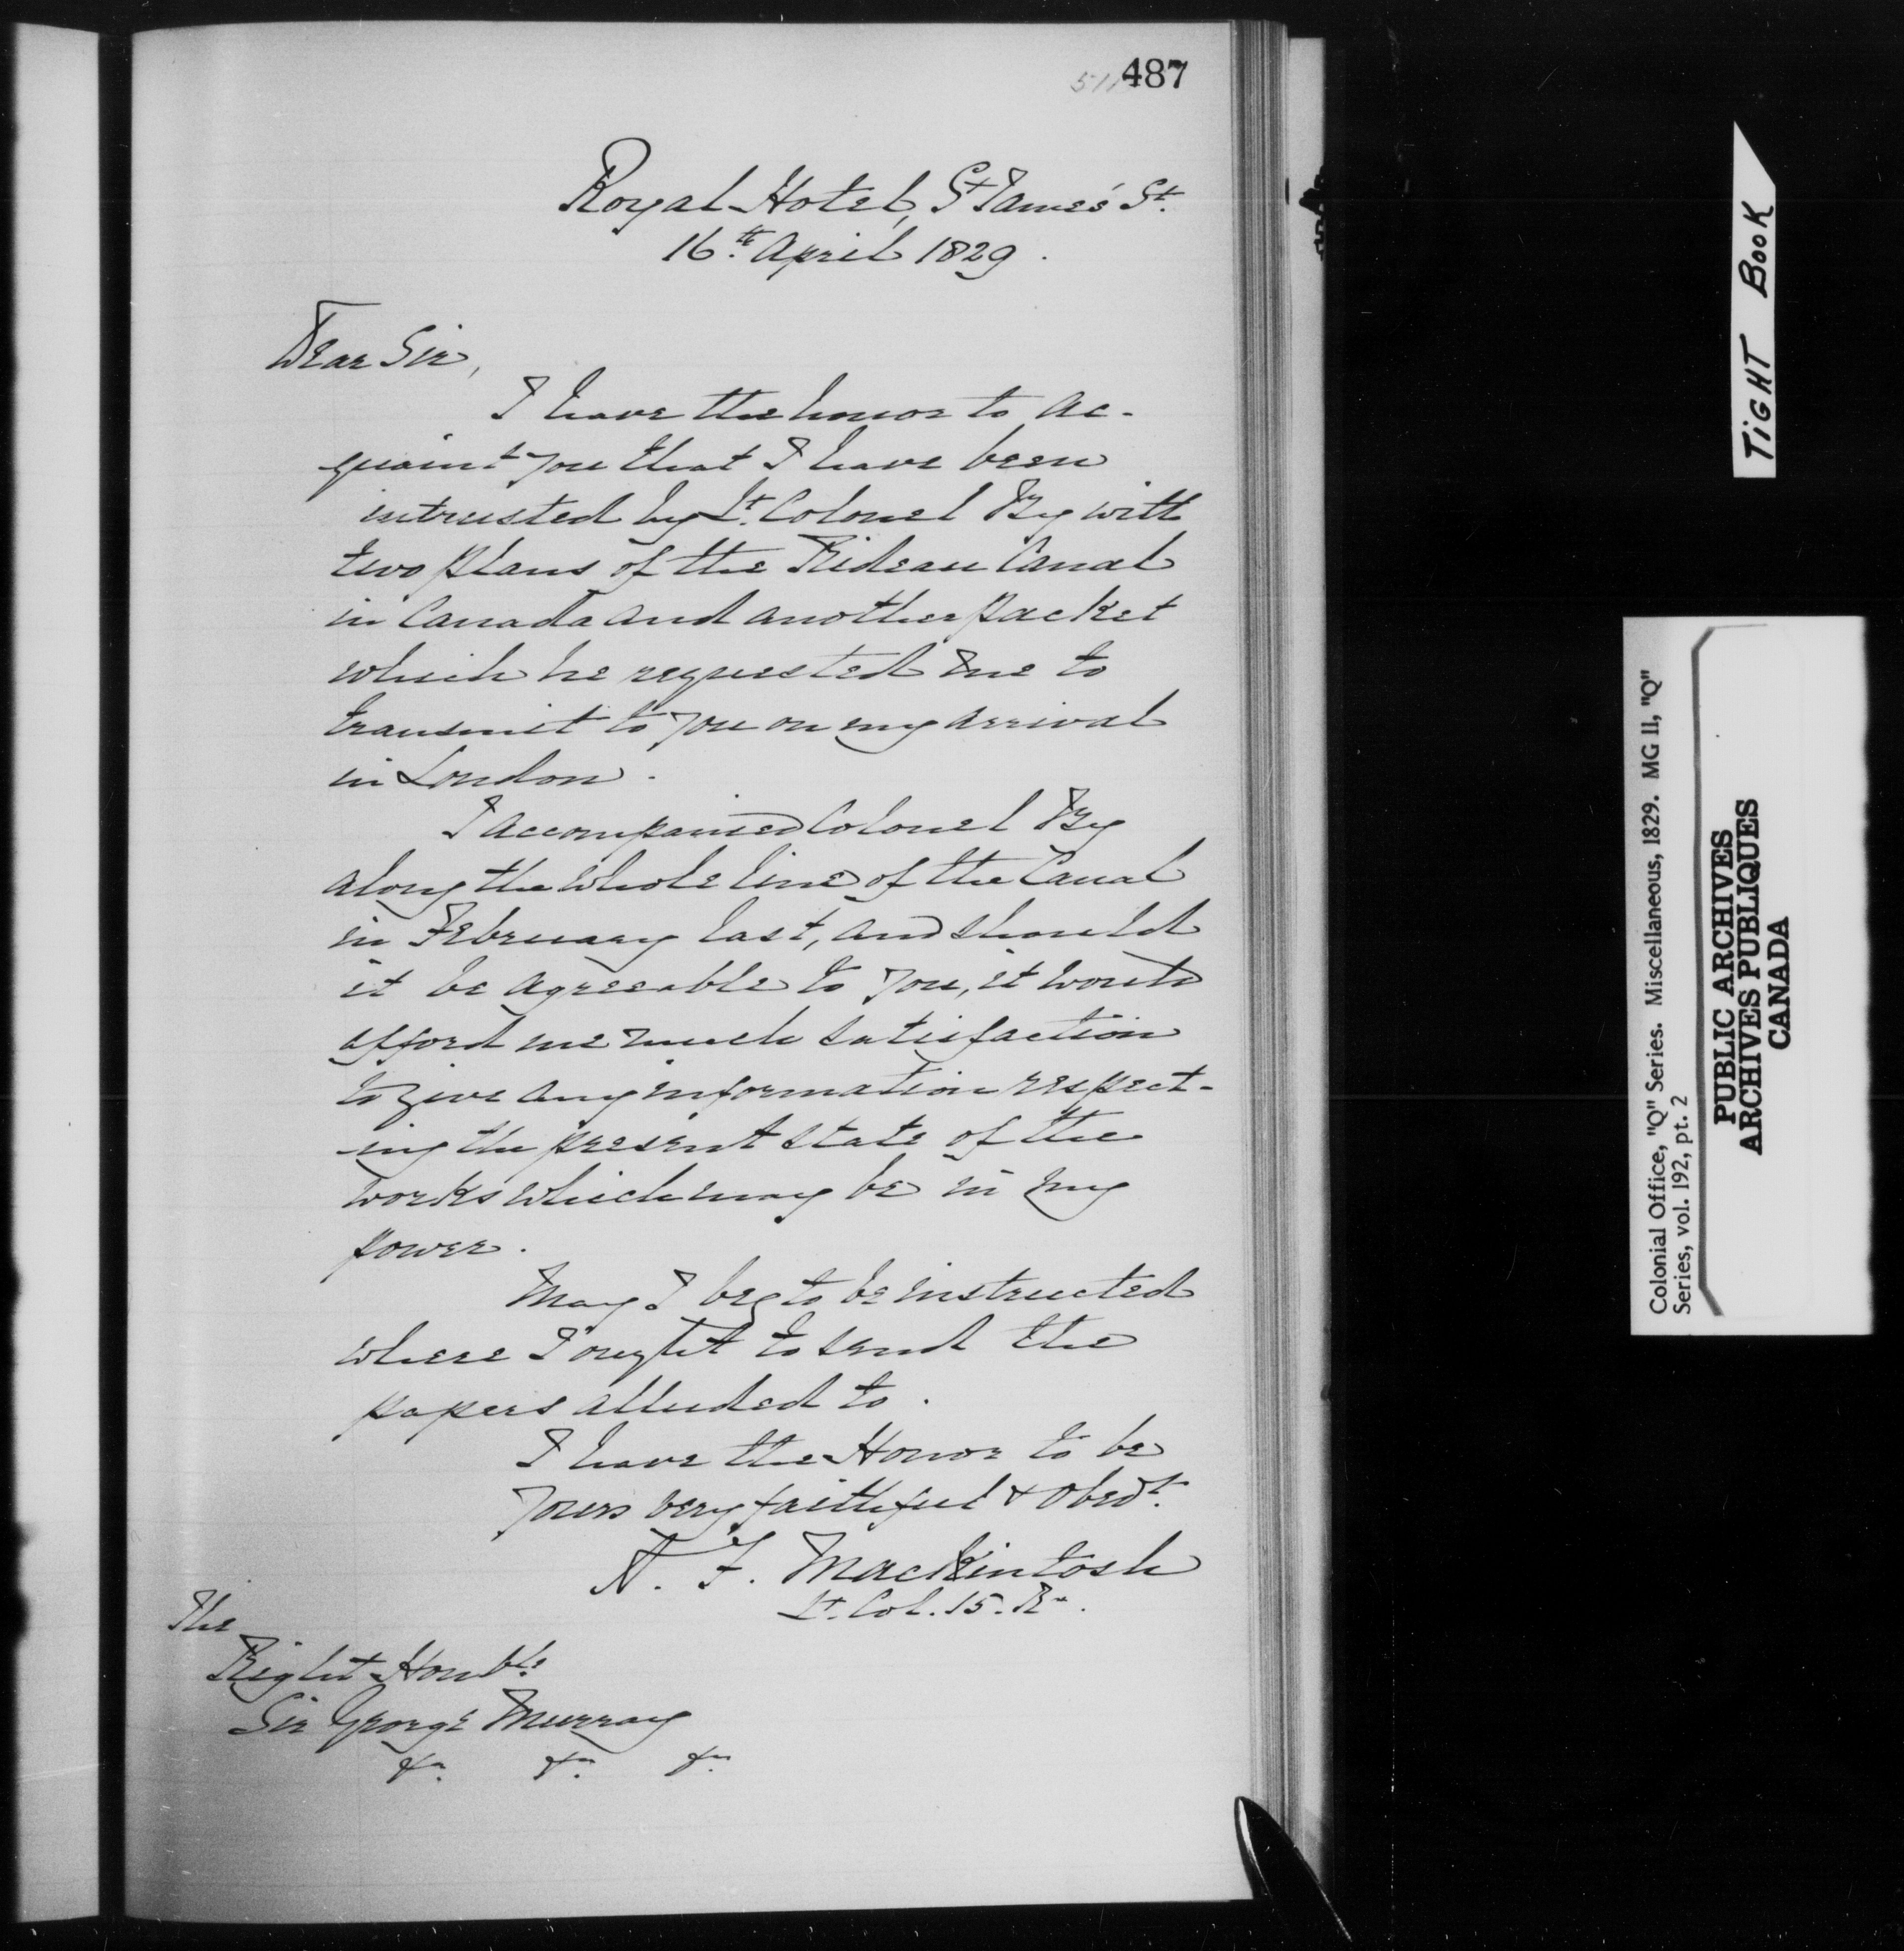 487
Royal Hotel, St James' St.
16th April 1829.
Dear Sir,
I have the honor to ac-
quaint you that I have been
intrusted by Lt. Colonel By with
two plans of the Rideau Canal
in Canada and another packet
which he requested me to
transmit to you on my arrival
in London.
I accompanied Colonel By
along the whole line of the Canal
in February last, and should
it be agreeable to you, it would
afford me much satisfaction
to give any information respect-
ing the present state of the
works which may be in my
power.
May I beg to be instructed
where I ought to send the
papers alluded to.
I have the Honor to be
Yours very faithful & Obedt.
A. F. MacKintosh
Lt. Col. 15.
The
Right Honble.
Sir George Murray
&c. &c. &c.
TIGHT BOOK
Colonial Office, "Q" Series. Miscellaneous, 1829. MG 11, "Q"
Series, vol. 192, pt. 2
PUBLIC ARCHIVES
ARCHIVES PUBLIQUES
CANADA